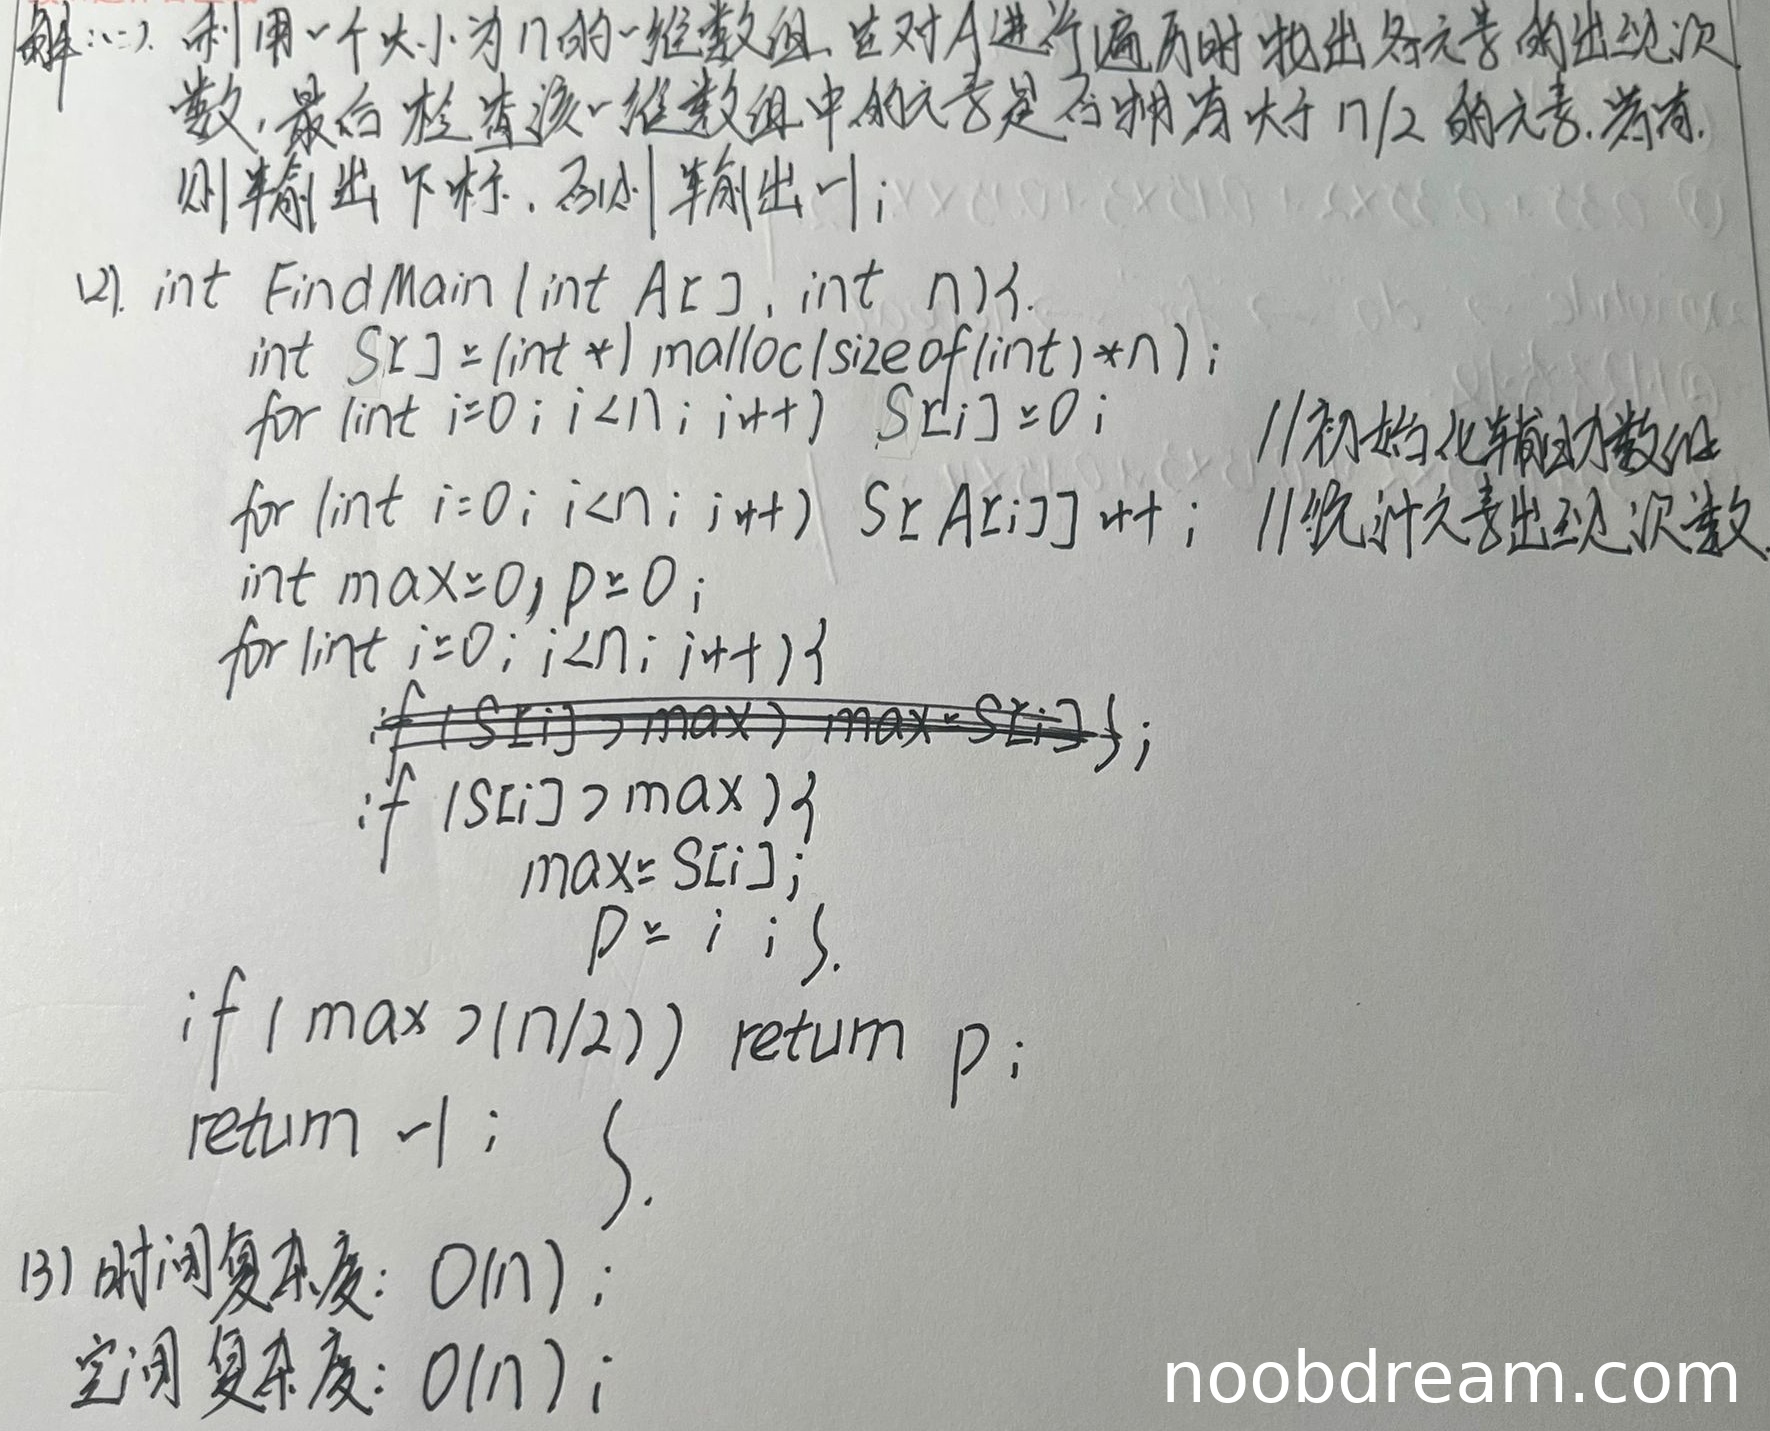 解:(1). 利用一个大小为n的一维数组,在对A进行遍历时找出各元素的出现次
数,最后检查该一维数组中的元素是否拥有大于n/2的元素.若有.
则输出下标.否则输出-1;
(2). int FindMain(int A[], int n){.
int S[]=(int*)malloc(sizeof(int)*n);
for(int i=0; i<n; i++) S[i]=0; //初始化辅助数组
for(int i=0; i<n; i++) S[A[i]]++; //统计元素出现次数.
int max=0, p=0;
for(int i=0; i<n; i++){
if(S[i]>max) max=S[i]};
if(S[i]>max){
max=S[i];
p=i;}.
if(max>(n/2)) return p;
return -1; }.
(3)时间复杂度: O(n);
空间复杂度: O(n);
noobdream.com